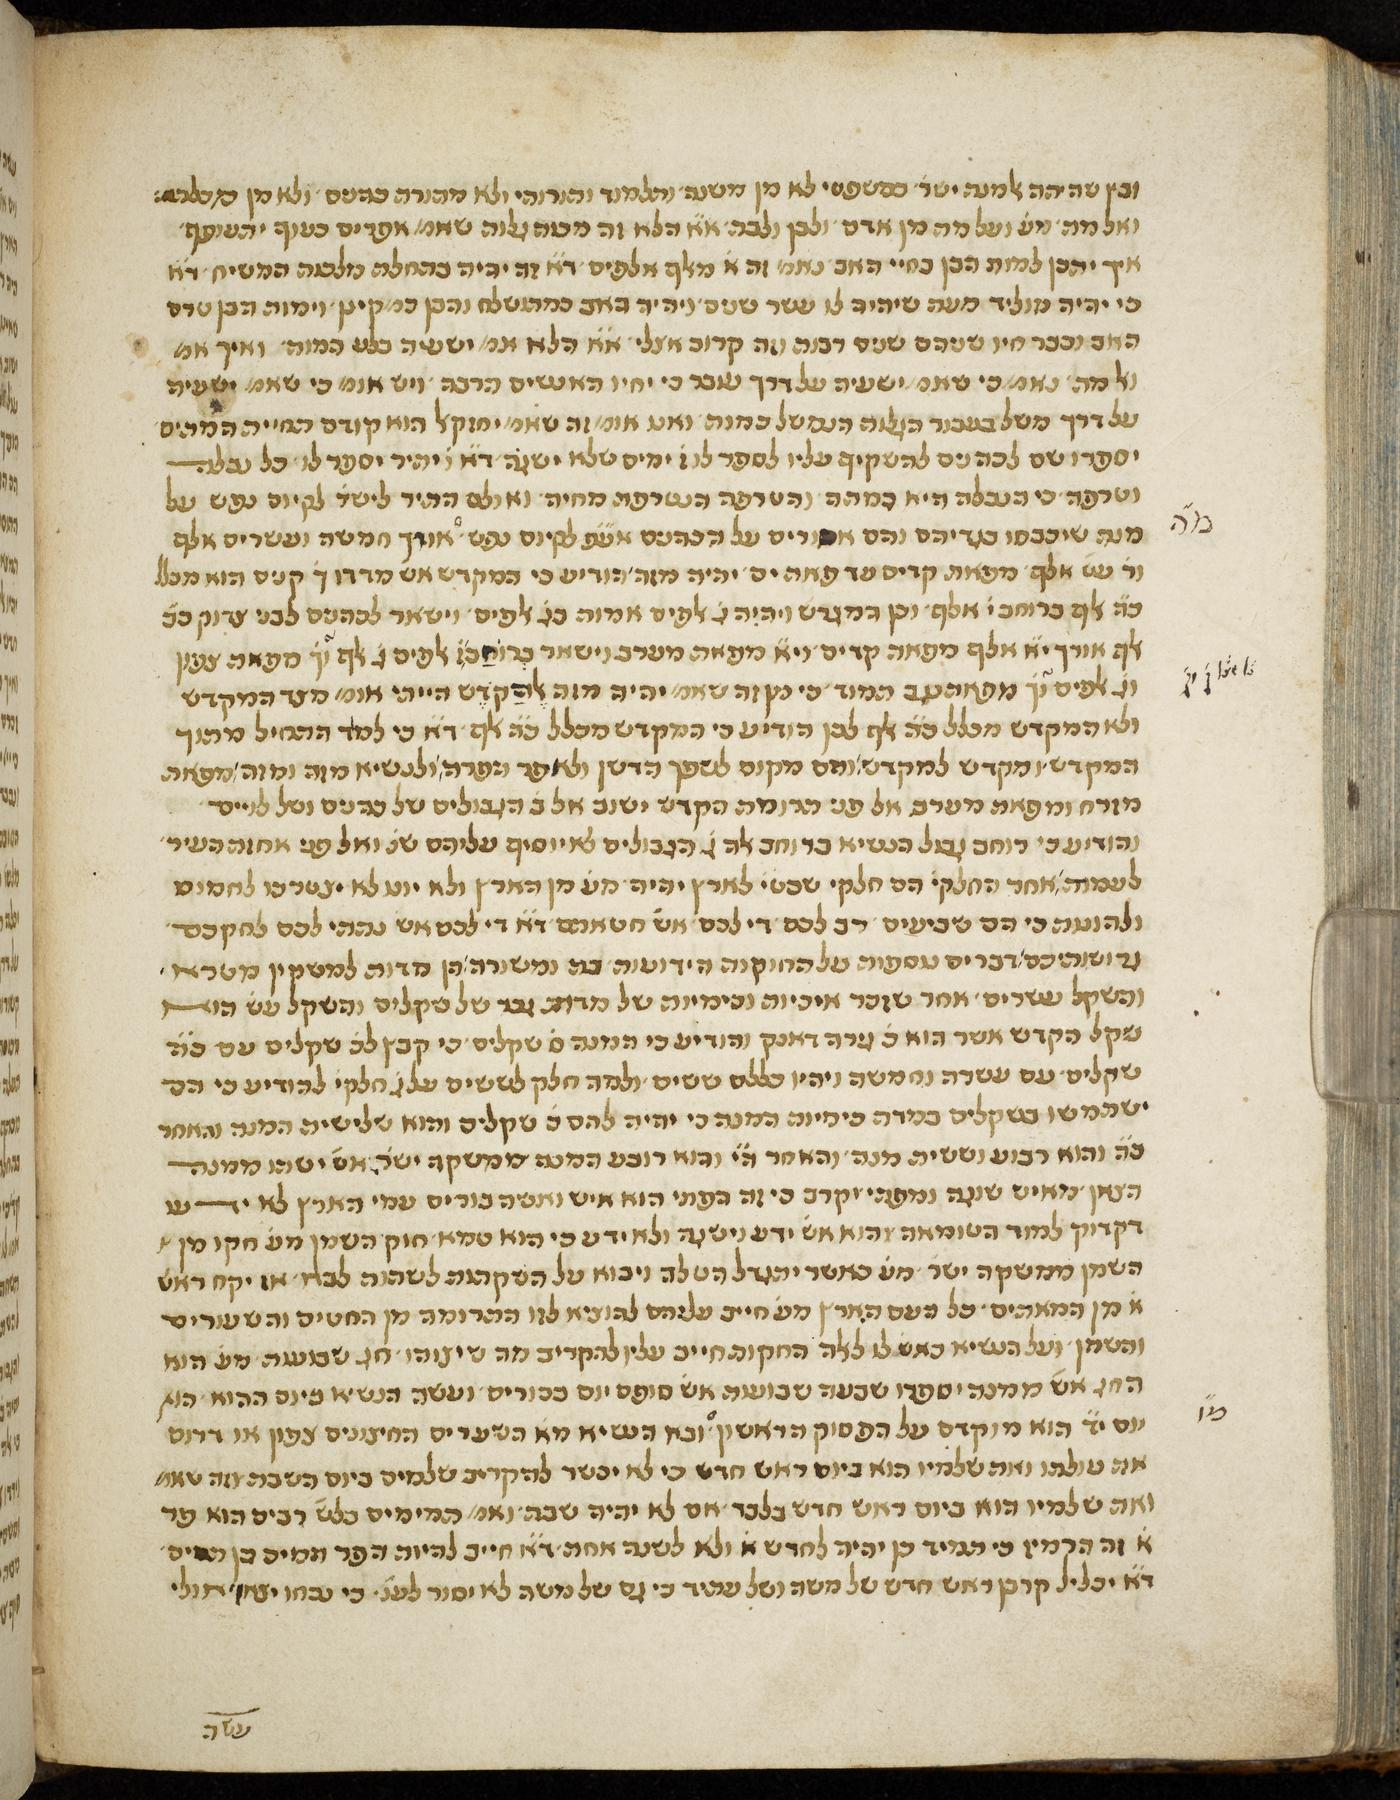 ובין שתהיה למנה ישר׳ כמשפטי לא מן משנה ותלמוד והורותי ולא מהורה כהנים ולא מן
ואל מה׳ מע׳ ועל מה מן אדם׳ ולבן ולבת׳ א״א הלא זה מכות גלות שאמ׳ אפרים כעוף יתעופף׳
איך יתכן למות הבן בחיי האב׳ נאמ׳ זה א׳ מאלף אלפים׳ ד״א זה יהיה בתחלת מלכות המשיח׳ ד״א
כי יהיה מוליד מעת שיהיה לו עשר שנים׳ ויהיה האב כמתושלח והבן כמ׳ קינן׳ וימות הבן טרם
האב וכבר חיו שניהם שנים רבות וזה קרוב אצלי׳ א״א הלא אמ׳ ישעיה בלע המות׳ ואיך אמ׳
ול מה׳ נאמ׳ כי שאמ׳ ישעיה על דרך עובר כי יחיו האנשים הרבה׳ ויש אומ׳ כי שאמ׳ ישעיה
על דרך משל בעבור הגלות הנמשל כמות׳ ואני אומ׳ זה שאמ׳ יחזקאל הוא קודם תחיית המתים
יספרו שם לכהנים להשקיף עליו לספר לו ז׳ ימים שלא ישגה׳ ד״א ז׳ יהיר יספר לו׳ כל נבלה
וטרפה׳ כי הנבלה היא המתה׳ והטרפה הנטרפת מחיה׳ ואולם התיר לישר׳ לקיום נפש על
מנת שיכבסו בגדיהם והם אסורים על הכהנים אע״פ לקיום נפש׳ אורך חמשה ועשרים אלף
ור׳ עש׳ אלף׳ מפאת קדים עד פאת ים׳ יהיה מזה׳ הודיע כי המקדש אש׳ מדדו ך׳ קנים הוא מכלל
כ״ה אלף ברוחב י׳ אלף׳ וכן המגרש ויהיה ג׳ אלפים אמות בג׳ אלפים׳ וישאר לכהנים לבני צדוק כ״ב
אלף אורך י״א אלף מפאת קדים׳ וי״א מפאת מערב׳ וישאר ברוחב ז׳ אלפים ג׳ אלף ת״ק מפאת צפון
וג׳ אלפים ת״ק מפאת נגב תמוד׳ כי מן זה שאמ׳ יהיה מזה אל הקדש הייתי אומ׳ מצד המקדש
ולא המקדש מכלל כ״ה אלף לכן הודיע כי המקדש מכלל כ״ה אלף׳ ד״א כי למד התחיל מתוך
המקדש׳ ומקדש למקדש׳ ותם מקום לשפך הדשן ולאפר הפרה׳ ולנשיא מזה ומזה׳ מפאת
מזרח ומפאת מערב׳ אל פני תרומת הקדש ישוב אל ב׳ הגבולים של כהנים ושל לויים׳
והודיע כי רוחב גבול הנשיא ברוחב אלה ג׳ הגבולים לא יוסיף עליהם ש״נ ואל פני אחזת העיר׳
לעמות׳ אחד החלקי׳ הם חלקי׳ שבטי׳ לארץ יהיה׳ מע׳ מן הארץ ולא יונו לא יצטרכו לחמוס
ולהונות כי הם שביעים׳ רב לכם׳ די לכם׳ אש׳ חטאתם׳ ד״א די לכם אש׳ נתתי לכם לחקכם׳
גרושותיכם׳ דברים נוספות על החוקות הידועות׳ בת׳ ומשורה׳ הן מדות למשקין
והשקל עשרים׳ אחר שזכר איכיות וכימיות של מדות גבר של שקלים והשקל עש׳ הוא
שקל הקדש אשר הוא כ׳ גרה דאנק והודיע כי המנה ס׳ שקלים׳ כי קבץ לכ׳ שקלים עם כ״ה
שקלים׳ עם עשרה וחמשה ויהיו כללם ששים׳ ולמה חלק לששים על ג׳ חלקי׳ להודיע כי הם
ישתמשו בשקלים במדה כימיות המנה כי יהיה להם כ׳ שקלים והוא שלישית המנה והאחר
כ״ה והוא רבוע וששית מנה׳ והאחר ה״י והוא רובע המנה׳ ממשקה ישר׳ אש׳ ישתו ממנה
הצאן׳ מאיש שוגה ומפתי׳ יקרב כי זה הפתי הוא איש ואשה בורים עמי הארץ לא ידעו
דקדוק לחוד הטומאה והוא אש׳ ידע וישגה ולא ידע כי הוא טמא׳ חוק השמן׳ מע׳ חקו מן
השמן ממשקה ישר׳ מע׳ כאשר יתגדל הטלה ויבוא על השקתות לשתות לבדו׳ אז יקח ראש׳
א׳ מן המאתים׳ כל העם הארץ מע׳ חייב עליהם להוציא לזו התרומה מן החטים והשעורים
והשמן׳ ועל הנשיא כאש׳ לו לאלה החקות חייב עליו להקריב מה שיצוהו׳ חג שבועות׳ מע׳ הוא
החג אש׳ ממנה יספרו שבעה שבועות אש׳ סופם יום בכורים׳ ועשה הנשיא ביום ההוא׳ הוא
יום י״ד הוא מוקדם על הפסוק הראשון׳ ובא הנשיא מא׳ השערים החיצונים צפון או דרום
את עולתו ואת שלמיו הוא ביום ראש חדש כי לא יכשר להקריב שלמים ביום השבת וזה שאמ׳
ואת שלמיו הוא ביום ראש חדש בלבד׳ אם לא יהיה שבת׳ ואמ׳ תמימים בלש׳ רבים הוא פר
א׳ זה הרמיז כי תמיד כן יהיה לחדש א׳ ולא לשנה אחת׳ ד״א חייב להיות הפר תמים בן תמים׳
ד״א יכליל קרבן ראש חדש של משה ושל עתיד כי גם של משה לא יסור לעו׳׳ כי נבחו
עשה
מ״ה
מ״ו